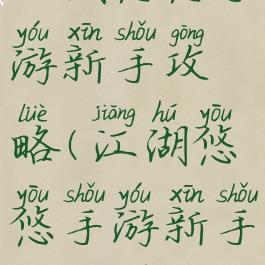 yóu xīn shǒu gōng
游新手攻
lüè jiāng hú yōu
略(江湖悠
yōu shǒu yóu xīn shǒu
悠手游新手